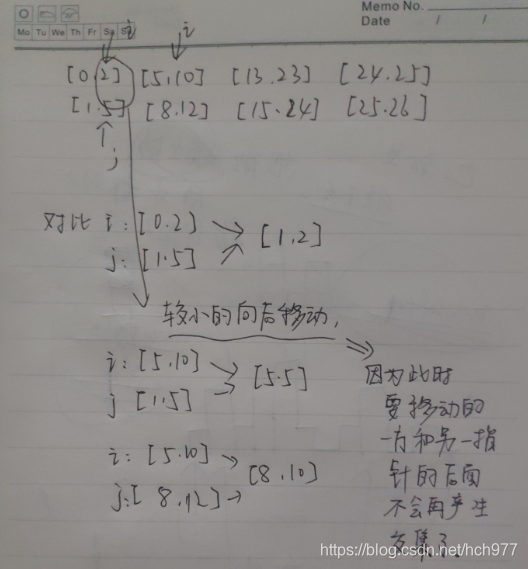 Memo No.
Date / /
Mo Tu We Th Fr Sa Su
i i
[0.2] [5.10] [13.23] [24.25]
[1.5] [8.12] [15.24] [25.26]
j
对比 i: [0.2] [1.2]
j: [1.5]
较小的向后移动,
i: [5.10] [5.5]
j [1.5]
因为此时
要移动的
一方和另一指
针的后面
不会再产生
交集了
i: [5.10] [8.10]
j:[ 8.12]
https://blog.csdn.net/hch977